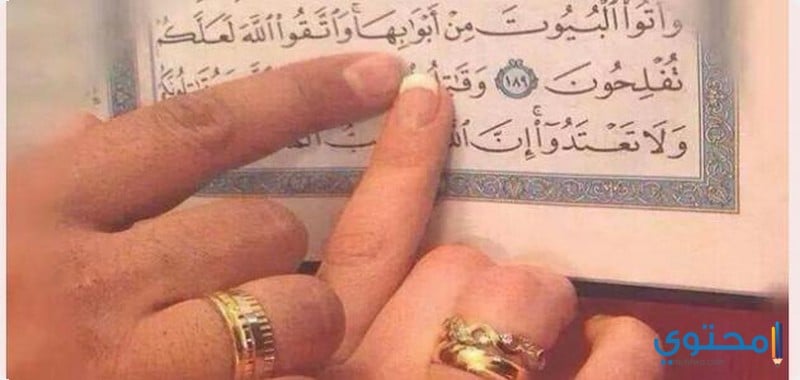 وَأْتُوا۟ ٱلْبُيُوتَ مِنْ أَبْوَٰبِهَا ۚ وَٱتَّقُوا۟ ٱللَّهَ لَعَلَّكُمْ
تُفْلِحُونَ ١٨٩
وَلَا تَعْتَدُوٓا۟ ۚ إِنَّ
محتوى